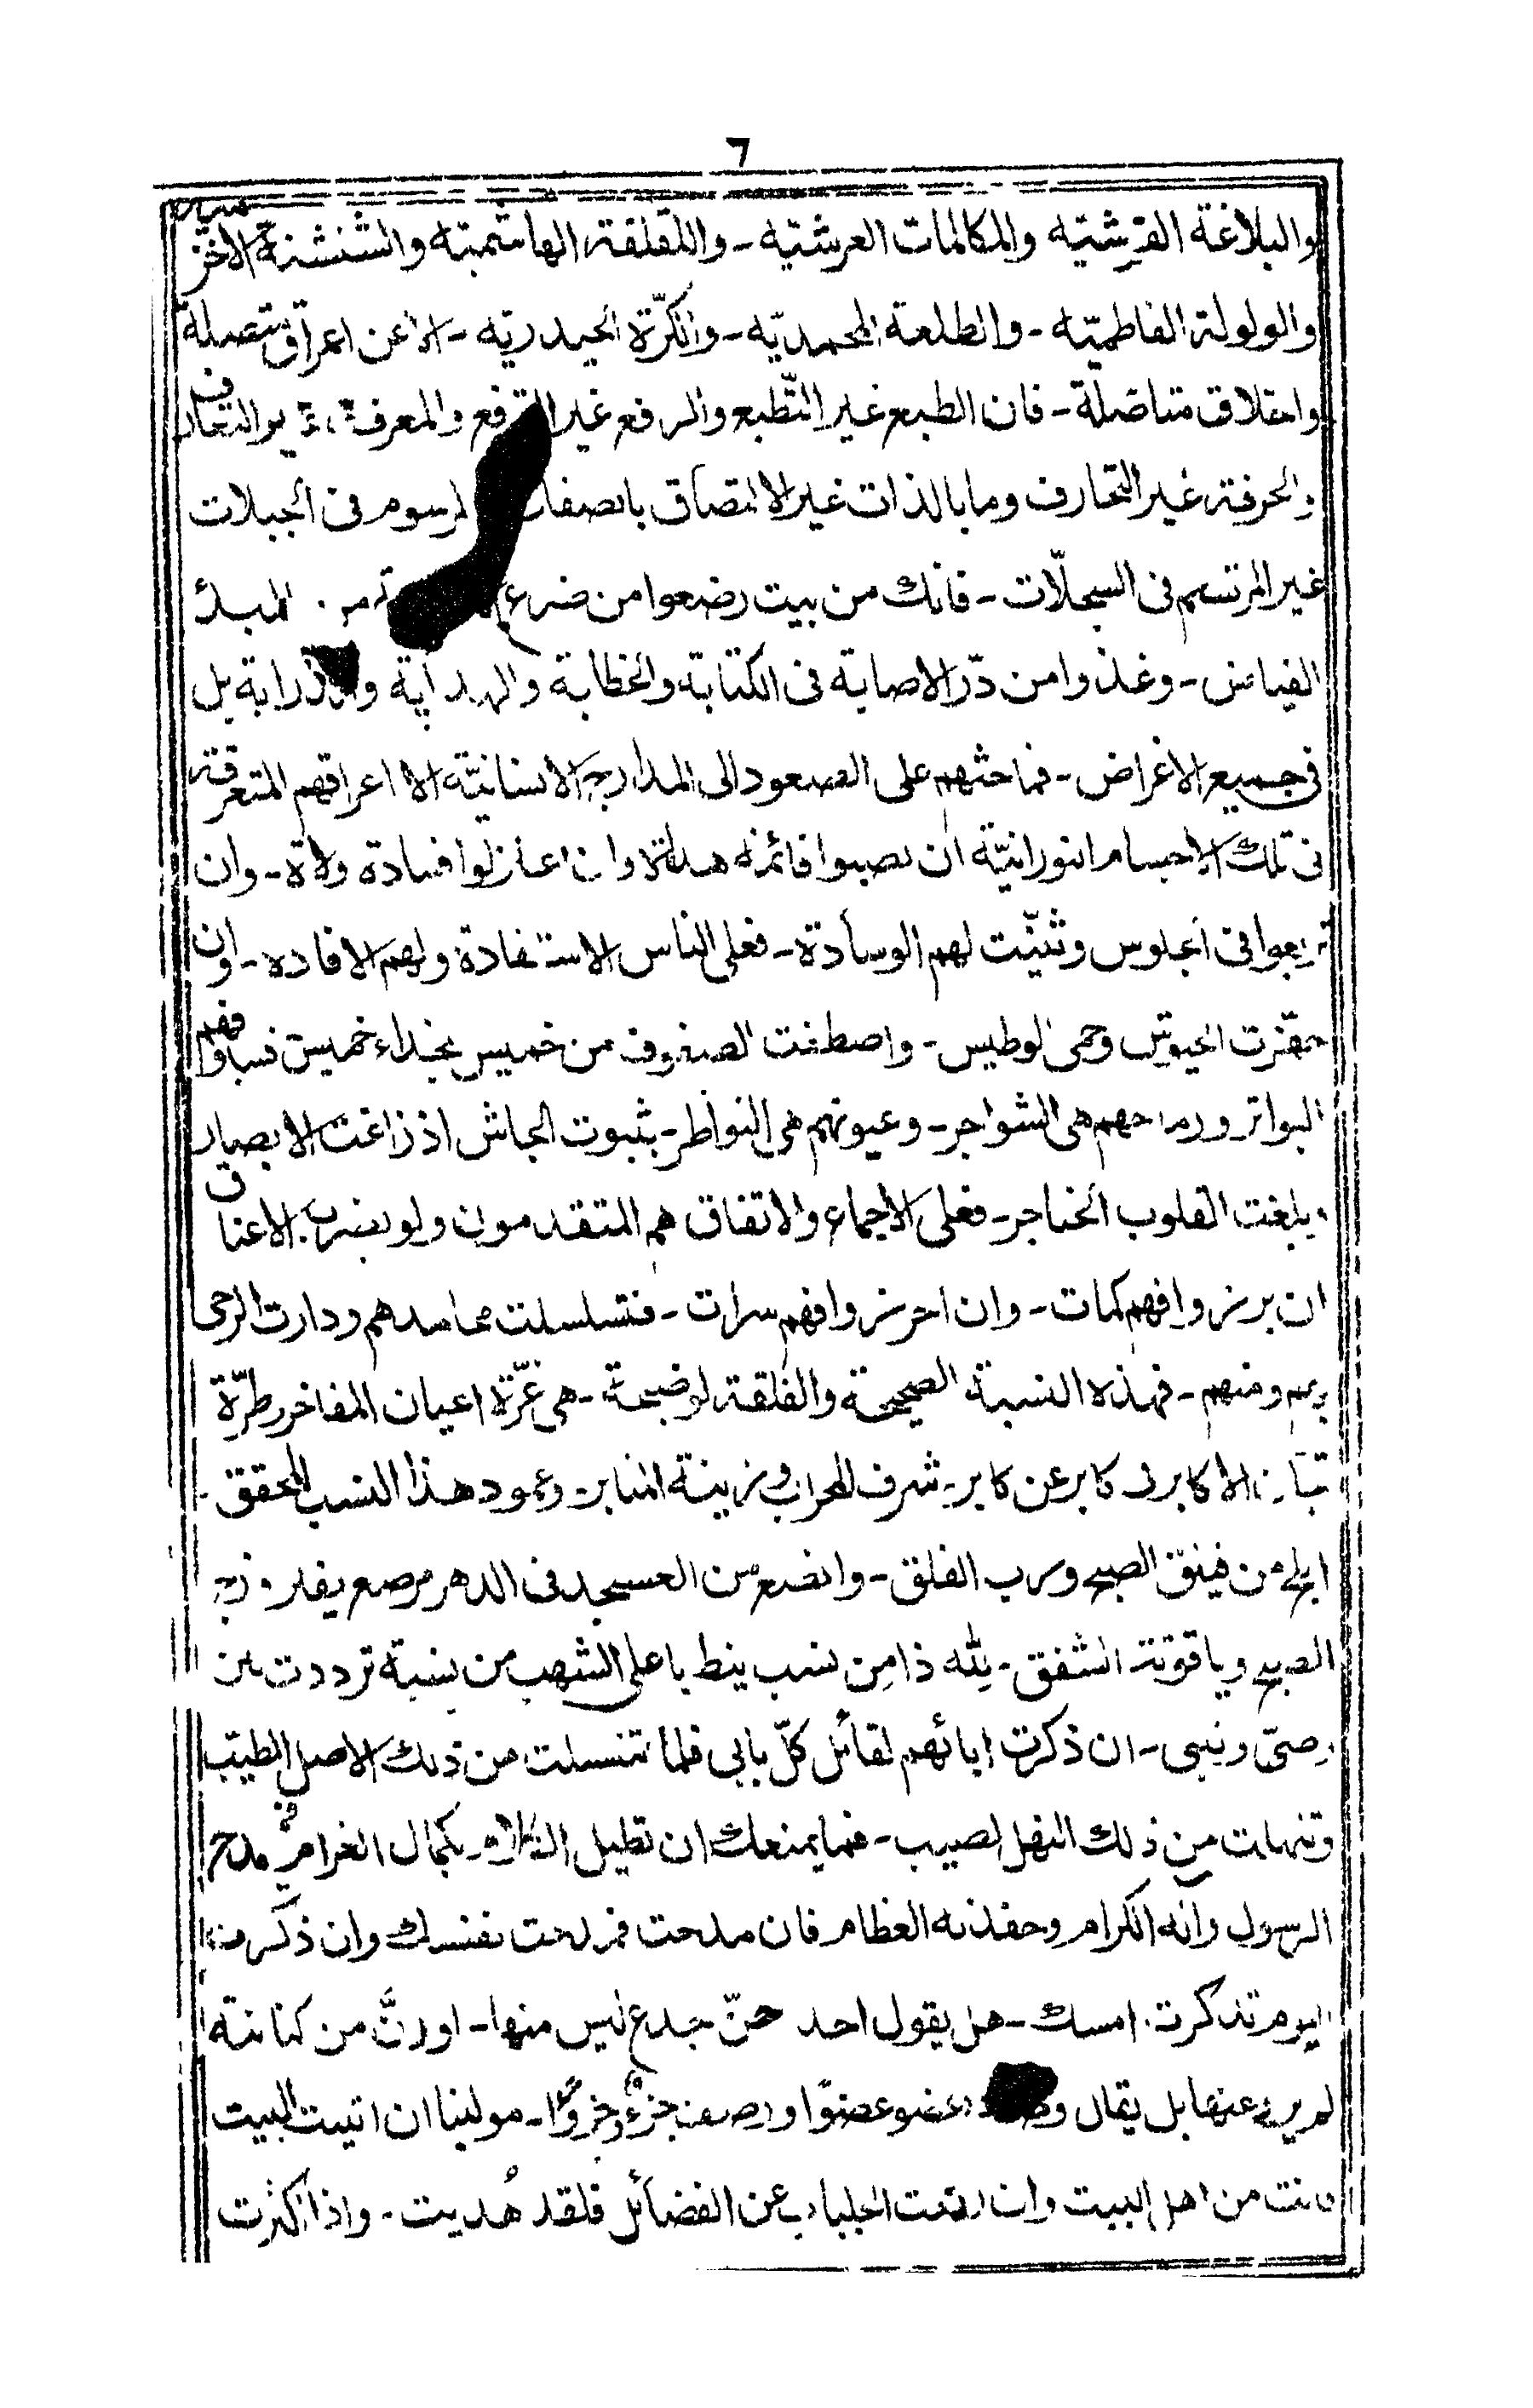 ٦
والبلاغة القرشيّه والمكالمات العرشيّه - واللقلقة الهاشميّه والشنشنة الاخزميّه
والولولة الفاطميّه - والطلعة المحمديّه - والكرّة الحيدريّه - الا عن اعراق متصلة
واخلاق متناضلة - فان الطبع غير التّطبع والرفع غير الترفع والمعرفة غير التعارف
والحرفة غير التحارف وما بالذات غير الاتصاف بالصفات المرسوم فى الجبلات
غير المرتسم فى السجلّات - فانك من بيت رضعوا من ضرع المبدأ
الفياض - وغذوا من درّ الاصابة فى الكتابة والخطابة والهداية والذرابة بل
فى جميع الاغراض - فما حثهم على الصعود الى المدارج الانسانيّة الا اعراقهم المتعرقة
فى تلك الاجسام النورانيّة ان نصبوا فائمة هداة وان اعتزلوا فسادة ولاة - وان
تربعوا فى الجلوس وثنيّت لهم الوسادة - فعلى الناس الاستفادة ولهم الافاده - وان
الجيوش وحمى الوطيس - واصطفت الصفوف من خميس بحذاء خميس فسيوفهم
البواتر ورماحهم هى الشواجر - وعيونهم هى النواظر - بثبوت الجاش اذ زاغت الابصار
وبلغت القلوب الحناجر - فعلى الاجماع والاتفاق هم المتقدمون ولو بضرب الاعناق
ان برزوا فهم كمات - وان احرزوا فهم سرات - فتسلسلت محامدهم ودارت الرحى
بهم ومنهم - فهذه النسبة الصحيحة والفلقة الوضيحة - هى غرّة اعيان المفاخر وطرّة
الاكابر كابر عن كابر - شرف المحراب وزينة المنابر - وعمود هذا النسب المحقق -
ابلج من فينق الصبح وسرب الفلق - وانصع من العسجد فى الدهر مرصع
الصبح وياقوتة الشفق - لله ذا من نسب ينط باعلى الشهب من نسبة ترددت بين
وصىّ ونبى - ان ذكرت ابائهم لقائل كلّ بابى فلما تنسلت من ذلك الاصل الطيّب
وتنهلت من ذلك النهل الصيب - فما يمنعك ان تطيل الكلام بكمال الغرام فى مدح
الرسول وآله الكرام وحفدته العظام فان مدحت فمدحت نفسك وان ذكرت
اليوم تذكرت امسك - هل يقول احد حنّ جدع ليس منها - او رنّ من كنانته
لم يرد عنها بل يقال عضو عضوًا ووصف جزء جزوًا - مولينا ان اتيت البيت
فانت من اهل البيت وان رفعت الجلباب عن الفضائل فلقد هُديت - واذا اكثرت